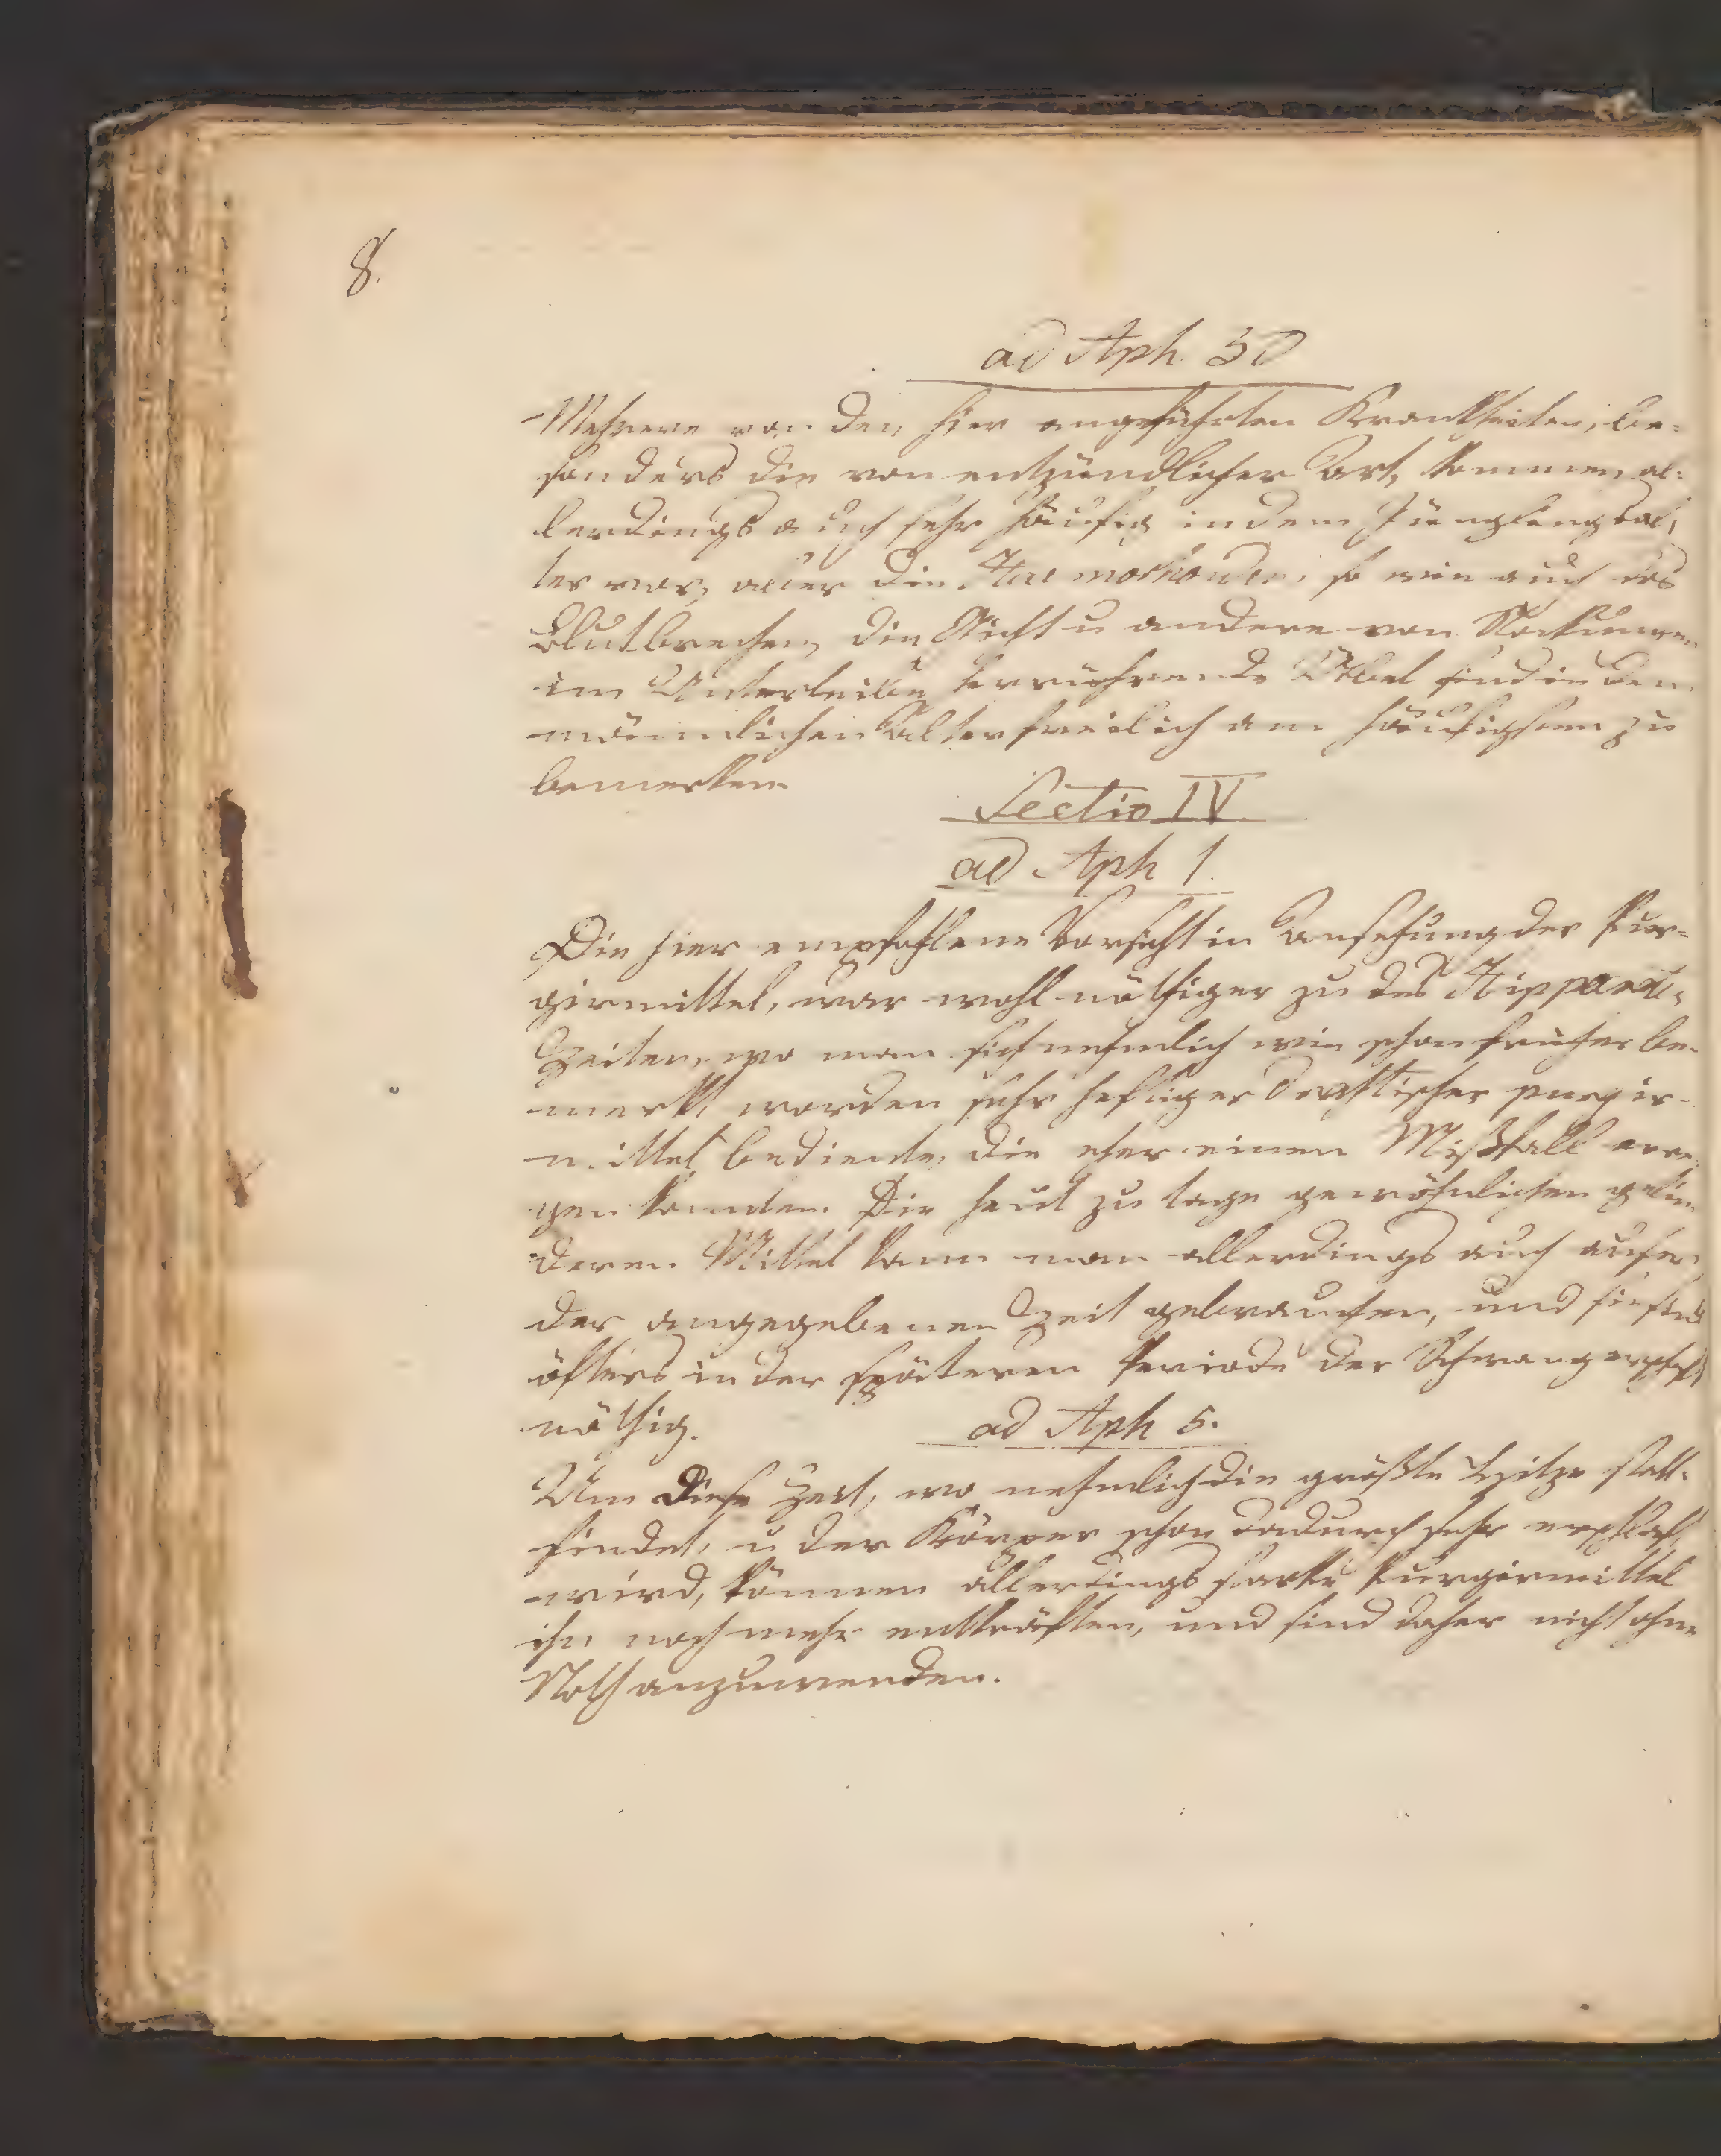 8.
ad Aph. 30
Mehrere von den hier angeführten Krankheiten, be-
sonders die von entzündlicher Art, kommen, al-
lerdings auch sehr häufig in dem Jünglingsal,
ter vor, aber die Haemorhoiden, so wie auch das
Blutbrechen, die Gicht u andere von Stockungen
im Unterleibe herrührende Übel sind in dem
männlichen Alter freilich am häufigsten zu
bemerken.
Sectio IV
ad Aph 1.
Die hier empfohlene Vorsicht in Ansehung der Pur-
girmittel, war wohl nöthiger zu des Hippocrat-
Zeiten, wo man sich nehmlich wie schon früher be-
merkt, worden sehr heftiger drastischer purgir-
mittel bediente, die eher einen Mißfall erre,
gen konnten. Die heut zu tage gewöhnlichen gelin
deren Mittel kann man allerdings auch außer
der angegebenen Zeit gebrauchen, und sie sind
öfters in der späteren Periode der Schwangerschaft
nöthig.
ad Aph 5.
Um diese Zeit, wo nehmlich die größte Hitze statt-
findet, u der Körper schon dadurch sehr erschlaft
wird, können allerdings starke Purgirmittel
ihn noch mehr entkräften, und sind daher nicht ohne
Noth anzuwenden.